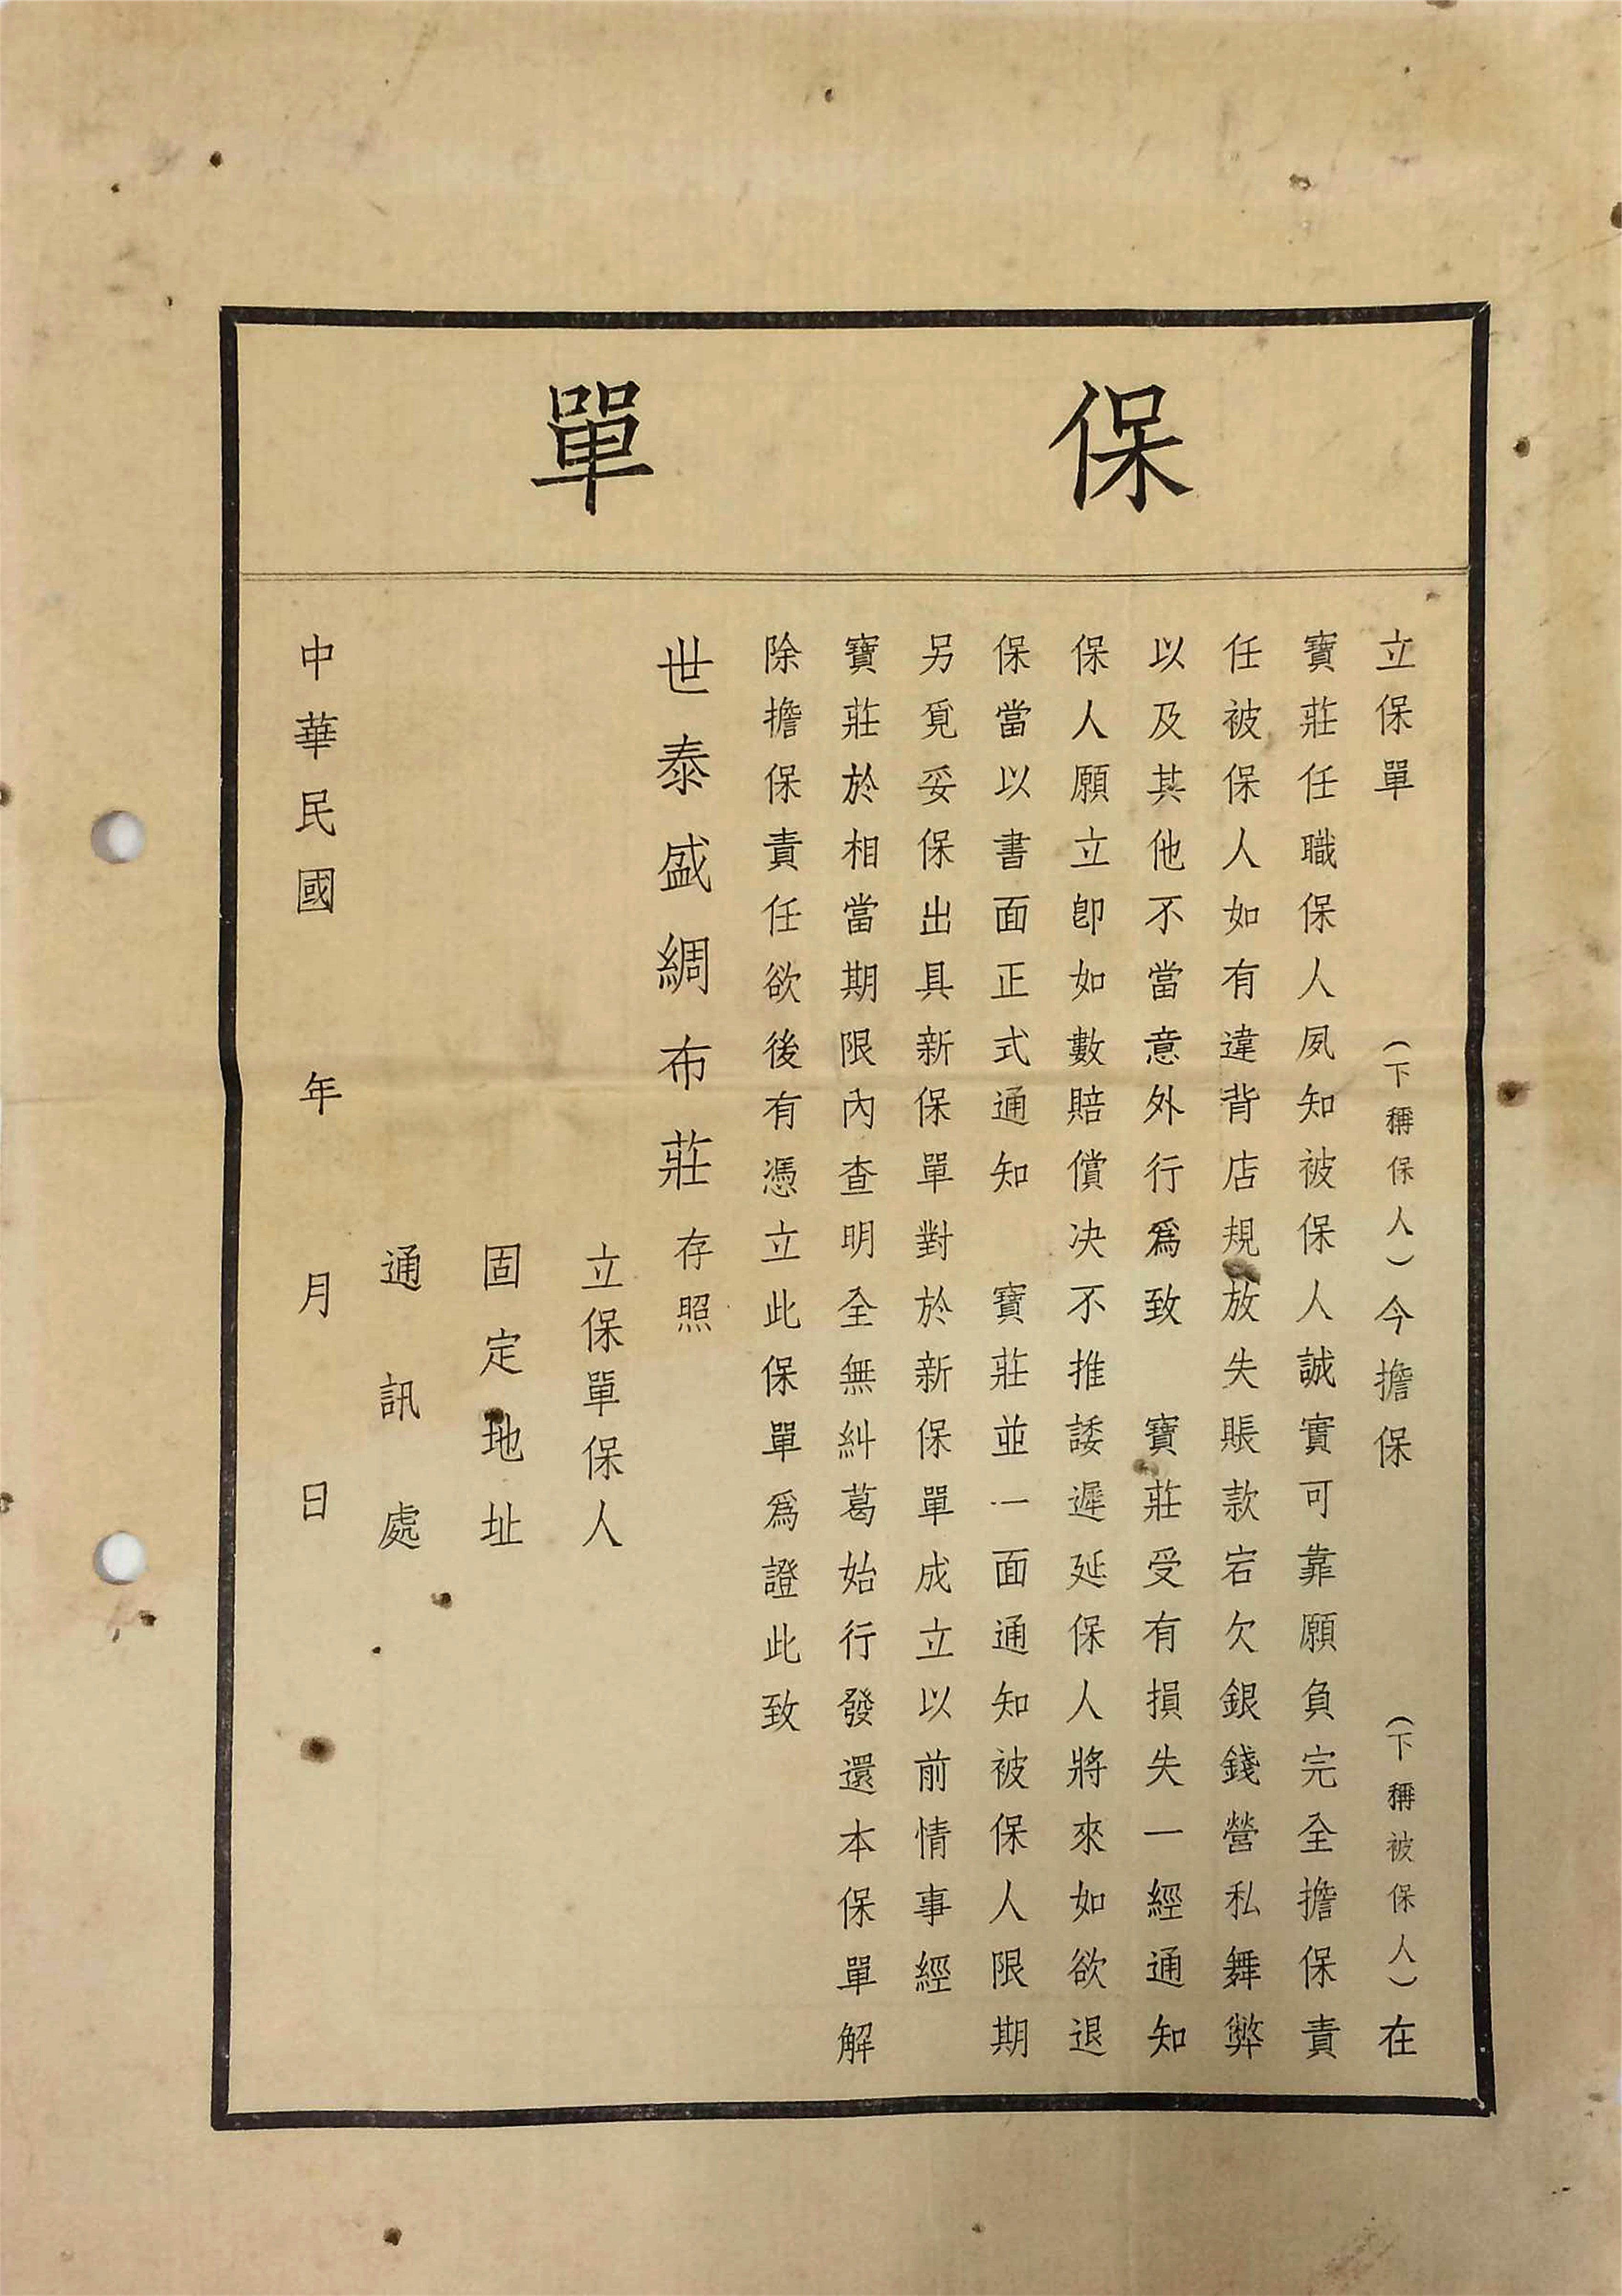 保單
立保單　　　（下稱保人）今擔保　　　（下稱被保人）在
寶莊任職保人夙知被保人誠實可靠願負完全擔保責
任被保人如有違背店規放失賬款宕欠銀錢營私舞弊
以及其他不當意外行爲致　寶莊受有損失一經通知
保人願立卽如數賠償决不推諉遲延保人將來如欲退
保當以書面正式通知　寶莊並一面通知被保人限期
另覓妥保出具新保單對於新保單成立以前情事經
寶莊於相當期限內查明全無糾葛始行發還本保單解
除擔保責任欲後有憑立此保單爲證此致
世泰盛綢布莊存照
立保單保人
固定地址
通訊處
中華民國　　年　　月　　日